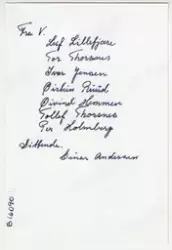 Fra V.
Leif Lillefjære
Tor Thorsnes
Ivar Jensen
Birkin Ruud
Øivind Hammer
Tollef Thorsnes
Per Holmberg
Sittende.
Einar Andersen
B16090